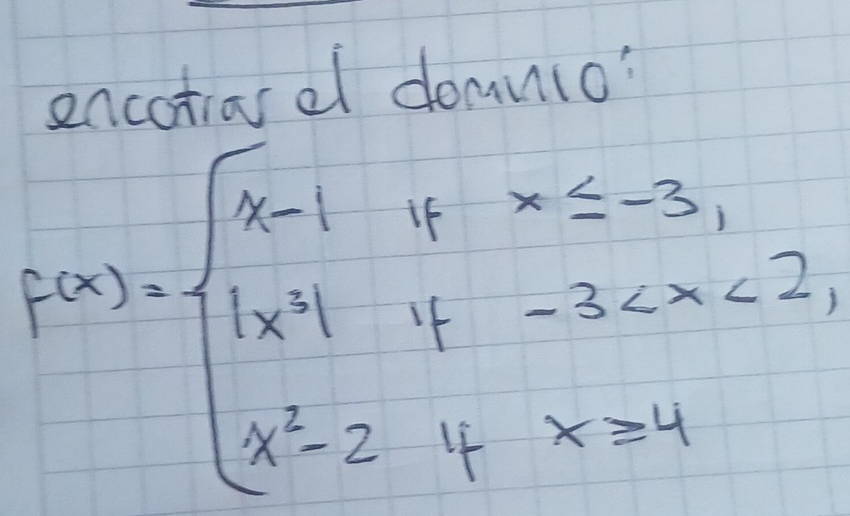 encotrar el dominio:
x-1 if x ≤ -3,
f(x) = { |x³| if -3 < x < 2,
x² - 2 if x ≥ 4